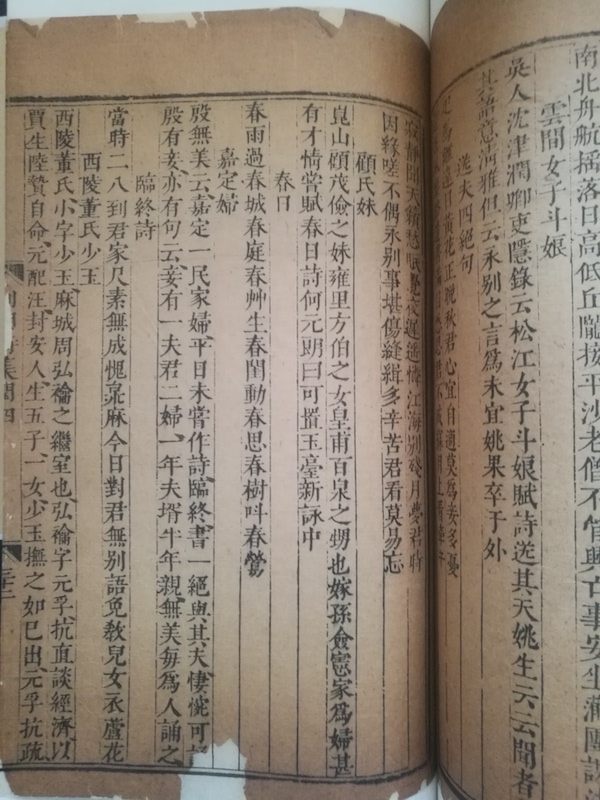 南北舟航搖落日高低丘隴接平沙老僧不管興亡事安坐蒲團
雲間女子斗娘
吳人沈津潤卿吏隱錄云松江女子斗娘賦詩送其夫姚生云云聞者
其語意清雅但云永別之言為未宜姚果卒于外
送夫四絕句
黃花正晚秋君心宜自適莫為妾多憂
江海別殘月夢君特
因緣嗟不偶永別事堪傷縫緝多辛苦君看莫易忘
顧氏妹
崑山顧茂儉之妹雍里方伯之女皇甫百泉之甥也嫁孫僉憲家為婦甚
有才情嘗賦春日詩何元朗曰可置玉臺新詠中
春日
春雨過春城春庭春艸生春閨動春思春樹呌春鶯
嘉定婦
殷無美云嘉定一民家婦平日未嘗作詩臨終書一絕與其夫悽惋可
殷有妾亦有句云妾有一夫君二婦一年夫壻半年親無美每為人誦之
臨終詩
當時二八到君家尺素無成愧枲麻今日對君無別語免敎兒女衣蘆花
西陵董氏少玉
西陵董氏小字少玉麻城周弘禴之繼室也弘禴字元孚抗直談經濟以
賈生陸贄自命元配汪封安人生五子一女少玉撫之如巳出元孚抗疏